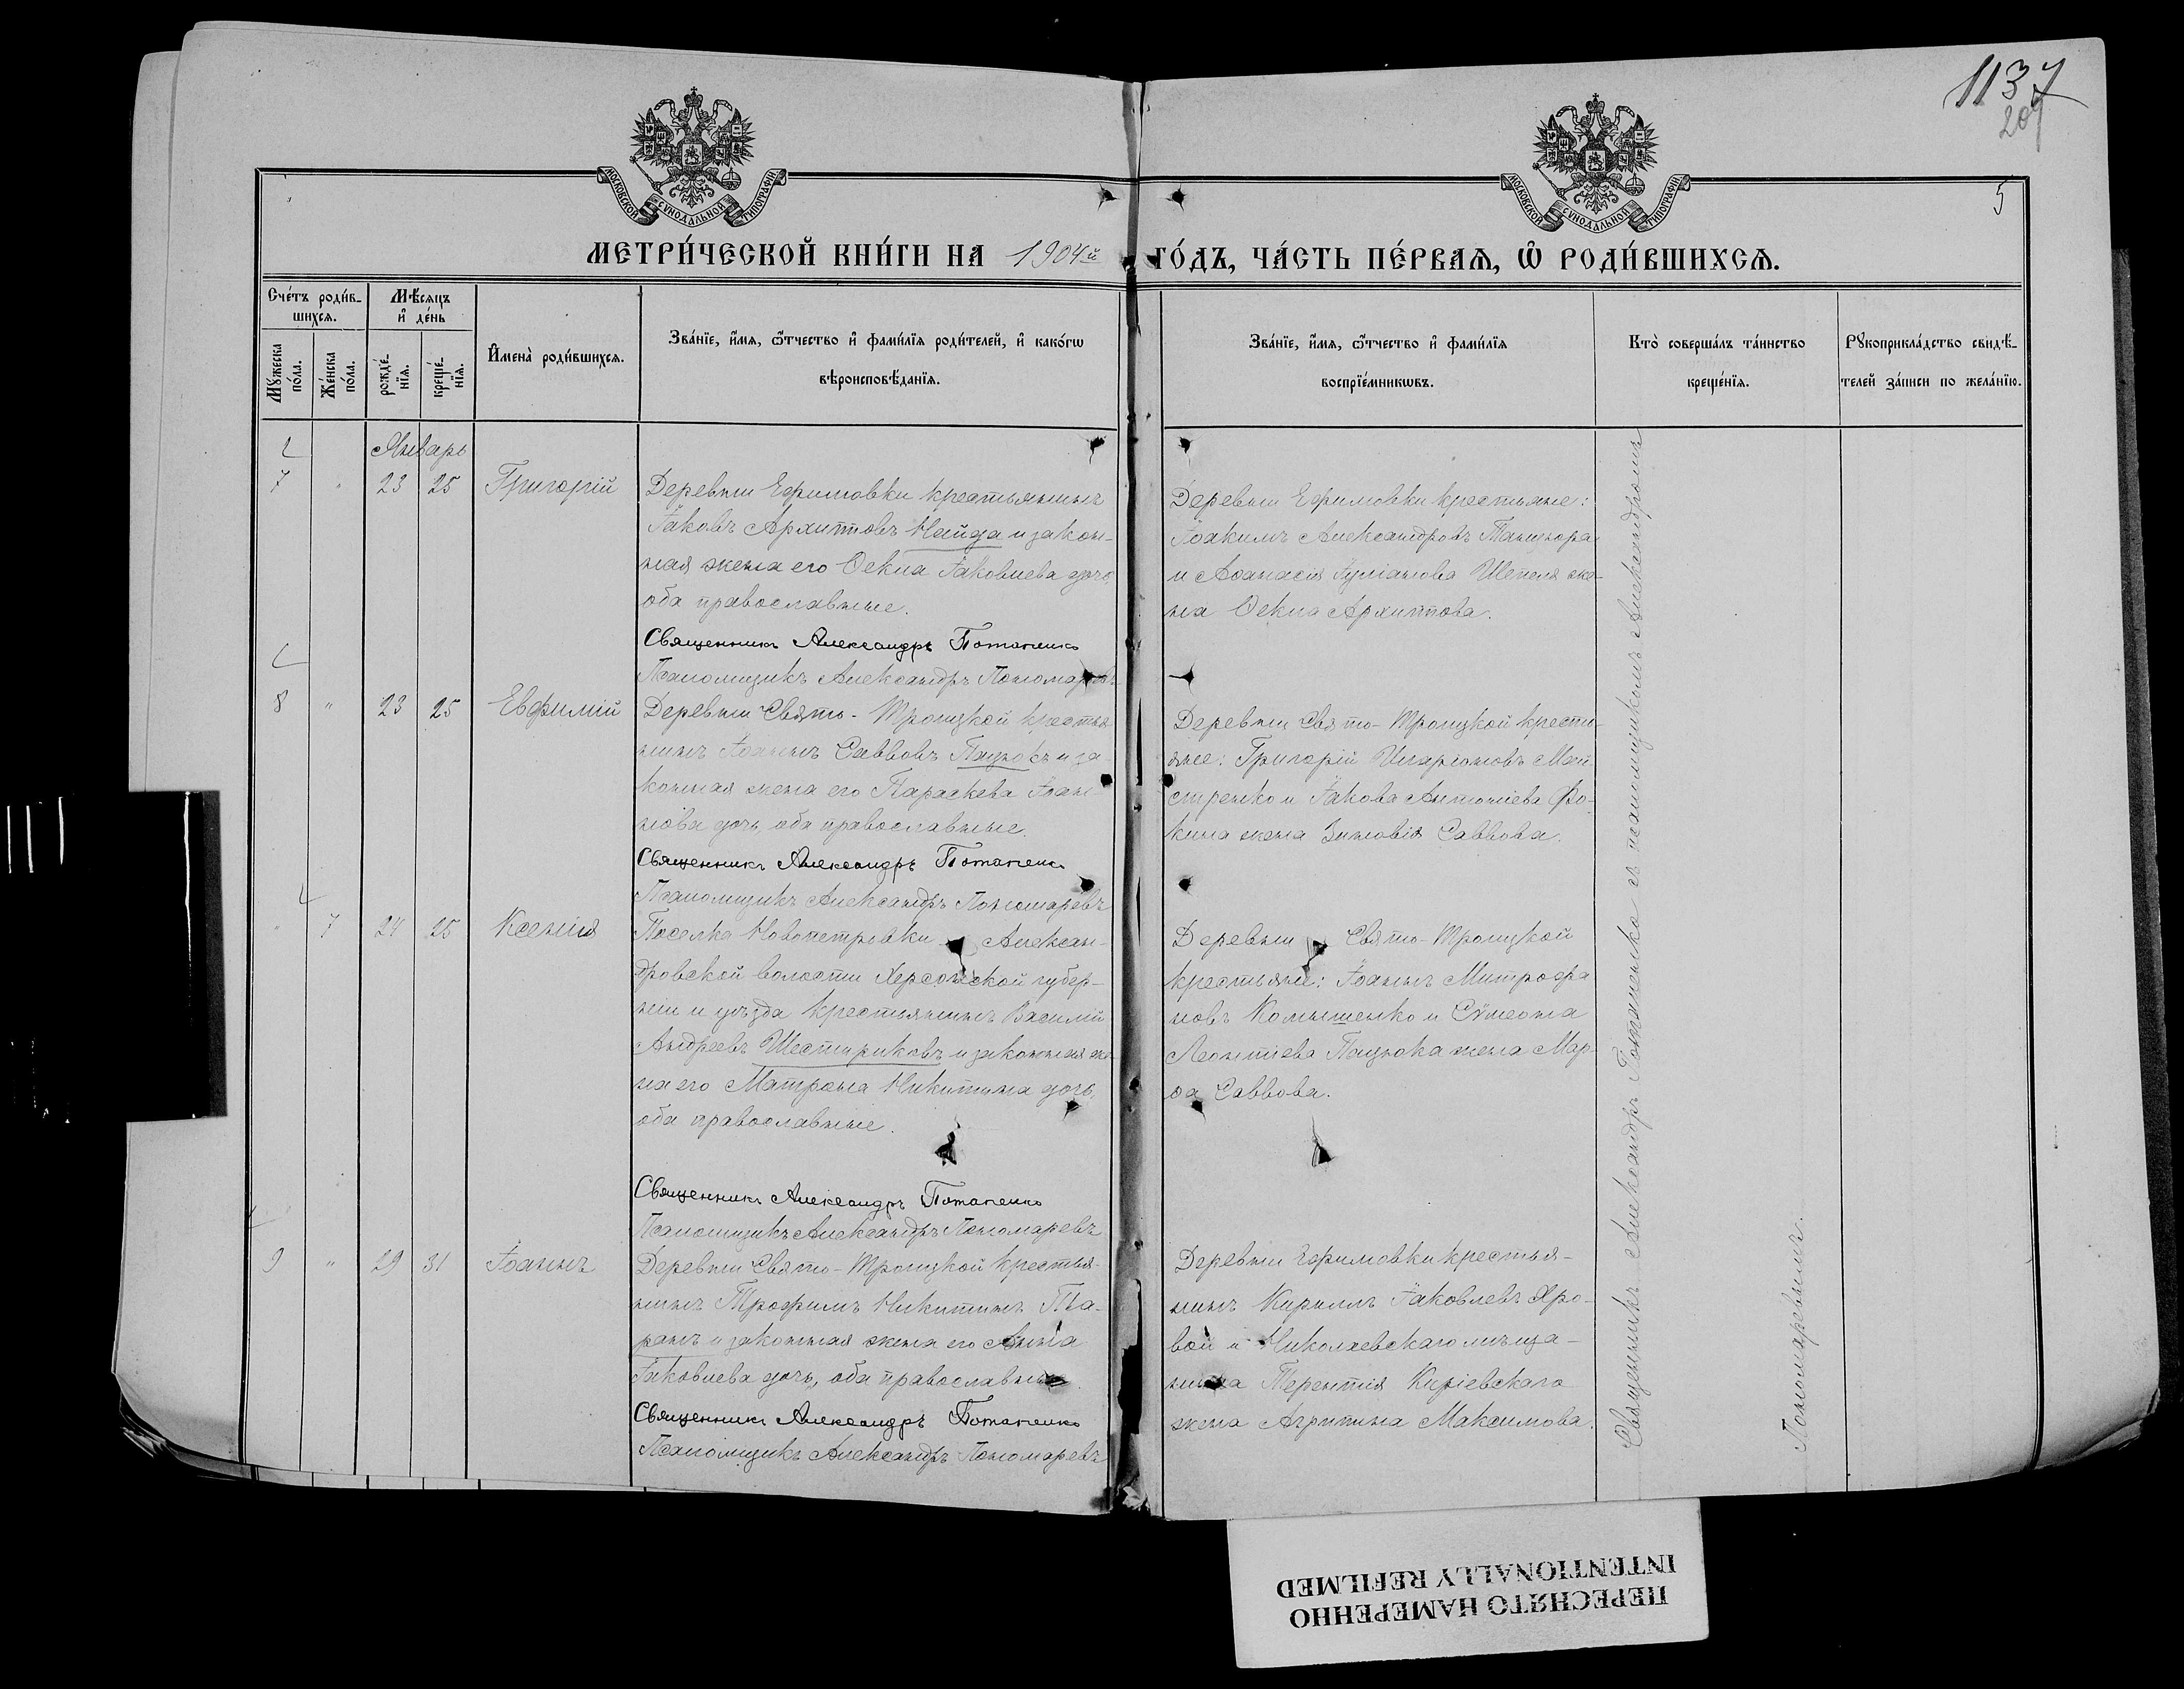 1137
209
5
МОСКОВСКОЙ СѴНОДАЛЬНОЙ ТИПОГРАФІИ
МОСКОВСКОЙ СѴНОДАЛЬНОЙ ТИПОГРАФІИ
МЕТРИ́ЧЕСКОЙ КНИ́ГИ НА 1904й ГО́ДЪ, ЧА́СТЬ ПЕ́РВАѦ, Ѽ РОДИ́ВШИХСѦ.
Сче́тъ роди́в-
шихсѧ.
Мꙋ́жеска
по́ла.
Же́нска
по́ла.
Мѣ́сѧцъ
и҆ де́нь
рожде́-
нїѧ.
креще́-
нїѧ.
И҆мена̀ роди́вшихсѧ.
Зва́нїе, и҆́мѧ, ѻ҆́тчество и҆ фами́лїѧ роди́телей, и҆ како́гѡ
вѣроисповѣ́данїѧ.
Зва́нїе, и҆́мѧ, ѻ҆́тчество и҆ фами́лїѧ
воспрїе́мникѡвъ.
Кто̀ соверша́лъ та́инство
креще́нїѧ.
Рꙋкоприкла́дство свидѣ́-
телей за́писи по жела́нїю.
Январь
7 " 23 25 Григорій
Деревни Ефимовки крестьянинъ
Іаковъ Архиповъ Найда и закон-
ная жена его Ѳекла Іаковлева дочь,
оба православные.
Священникъ Александръ Потапенко
Псаломщикъ Александръ Пономаревъ
Деревни Ефимовки крестьяне:
Іоакимъ Александровъ Танцюра
и Аѳанасія Іуліанова Шепеля же-
на Ѳекла Архиппова.
8 " 23 25 Евфимій
Деревни Свято-Троицкой крестья
нинъ Іоаннъ Саввовъ Пацюкъ и за-
конная жена его Параскева Іоан-
нова дочь, оба православные.
Священникъ Александръ Потапенко
Псаломщикъ Александръ Пономаревъ
Деревни Свято-Троицкой кресть-
яне: Григорій Иларіоновъ Май
стренко и Іакова Антоніева Фо-
кина жена Зиновія Саввова.
" 7 24 25 Ксенія
Поселка Новопетровки Алексан-
дровской волости Херсонской губер-
ніи и уѣзда крестьянинъ Василій
Андреевъ Шестириковъ и законная же-
на его Матрона Никитина дочь,
оба православные.
Священникъ Александръ Потапенко
Псаломщикъ Александръ Пономаревъ
Деревни Свято-Троицкой
крестьяне: Іоаннъ Митрофа
новъ Комышенко и Сѵмеона
Леонтіева Пацюка жена Мар-
ѳа Саввова.
9 " 29 31 Іоаннъ
Деревни Свято-Троицкой крестья-
нинъ Трофимъ Никитинъ
и законная жена его Анна
Іаковлева дочь, оба православные.
Священникъ Александръ Потапенко
Псаломщикъ Александръ Пономаревъ
Деревни Ефимовки крестья-
нинъ Кириллъ Іаковлевъ Яро-
вой и Николаевскаго мѣща-
нина Терентія Киріевскаго
жена Агрипина Максимова.
Священникъ Александръ Потапенко съ псаломщикомъ Александромъ
Пономаревымъ.
ПЕРЕСНЯТО НАМЕРЕННО
INTENTIONALLY REFILMED